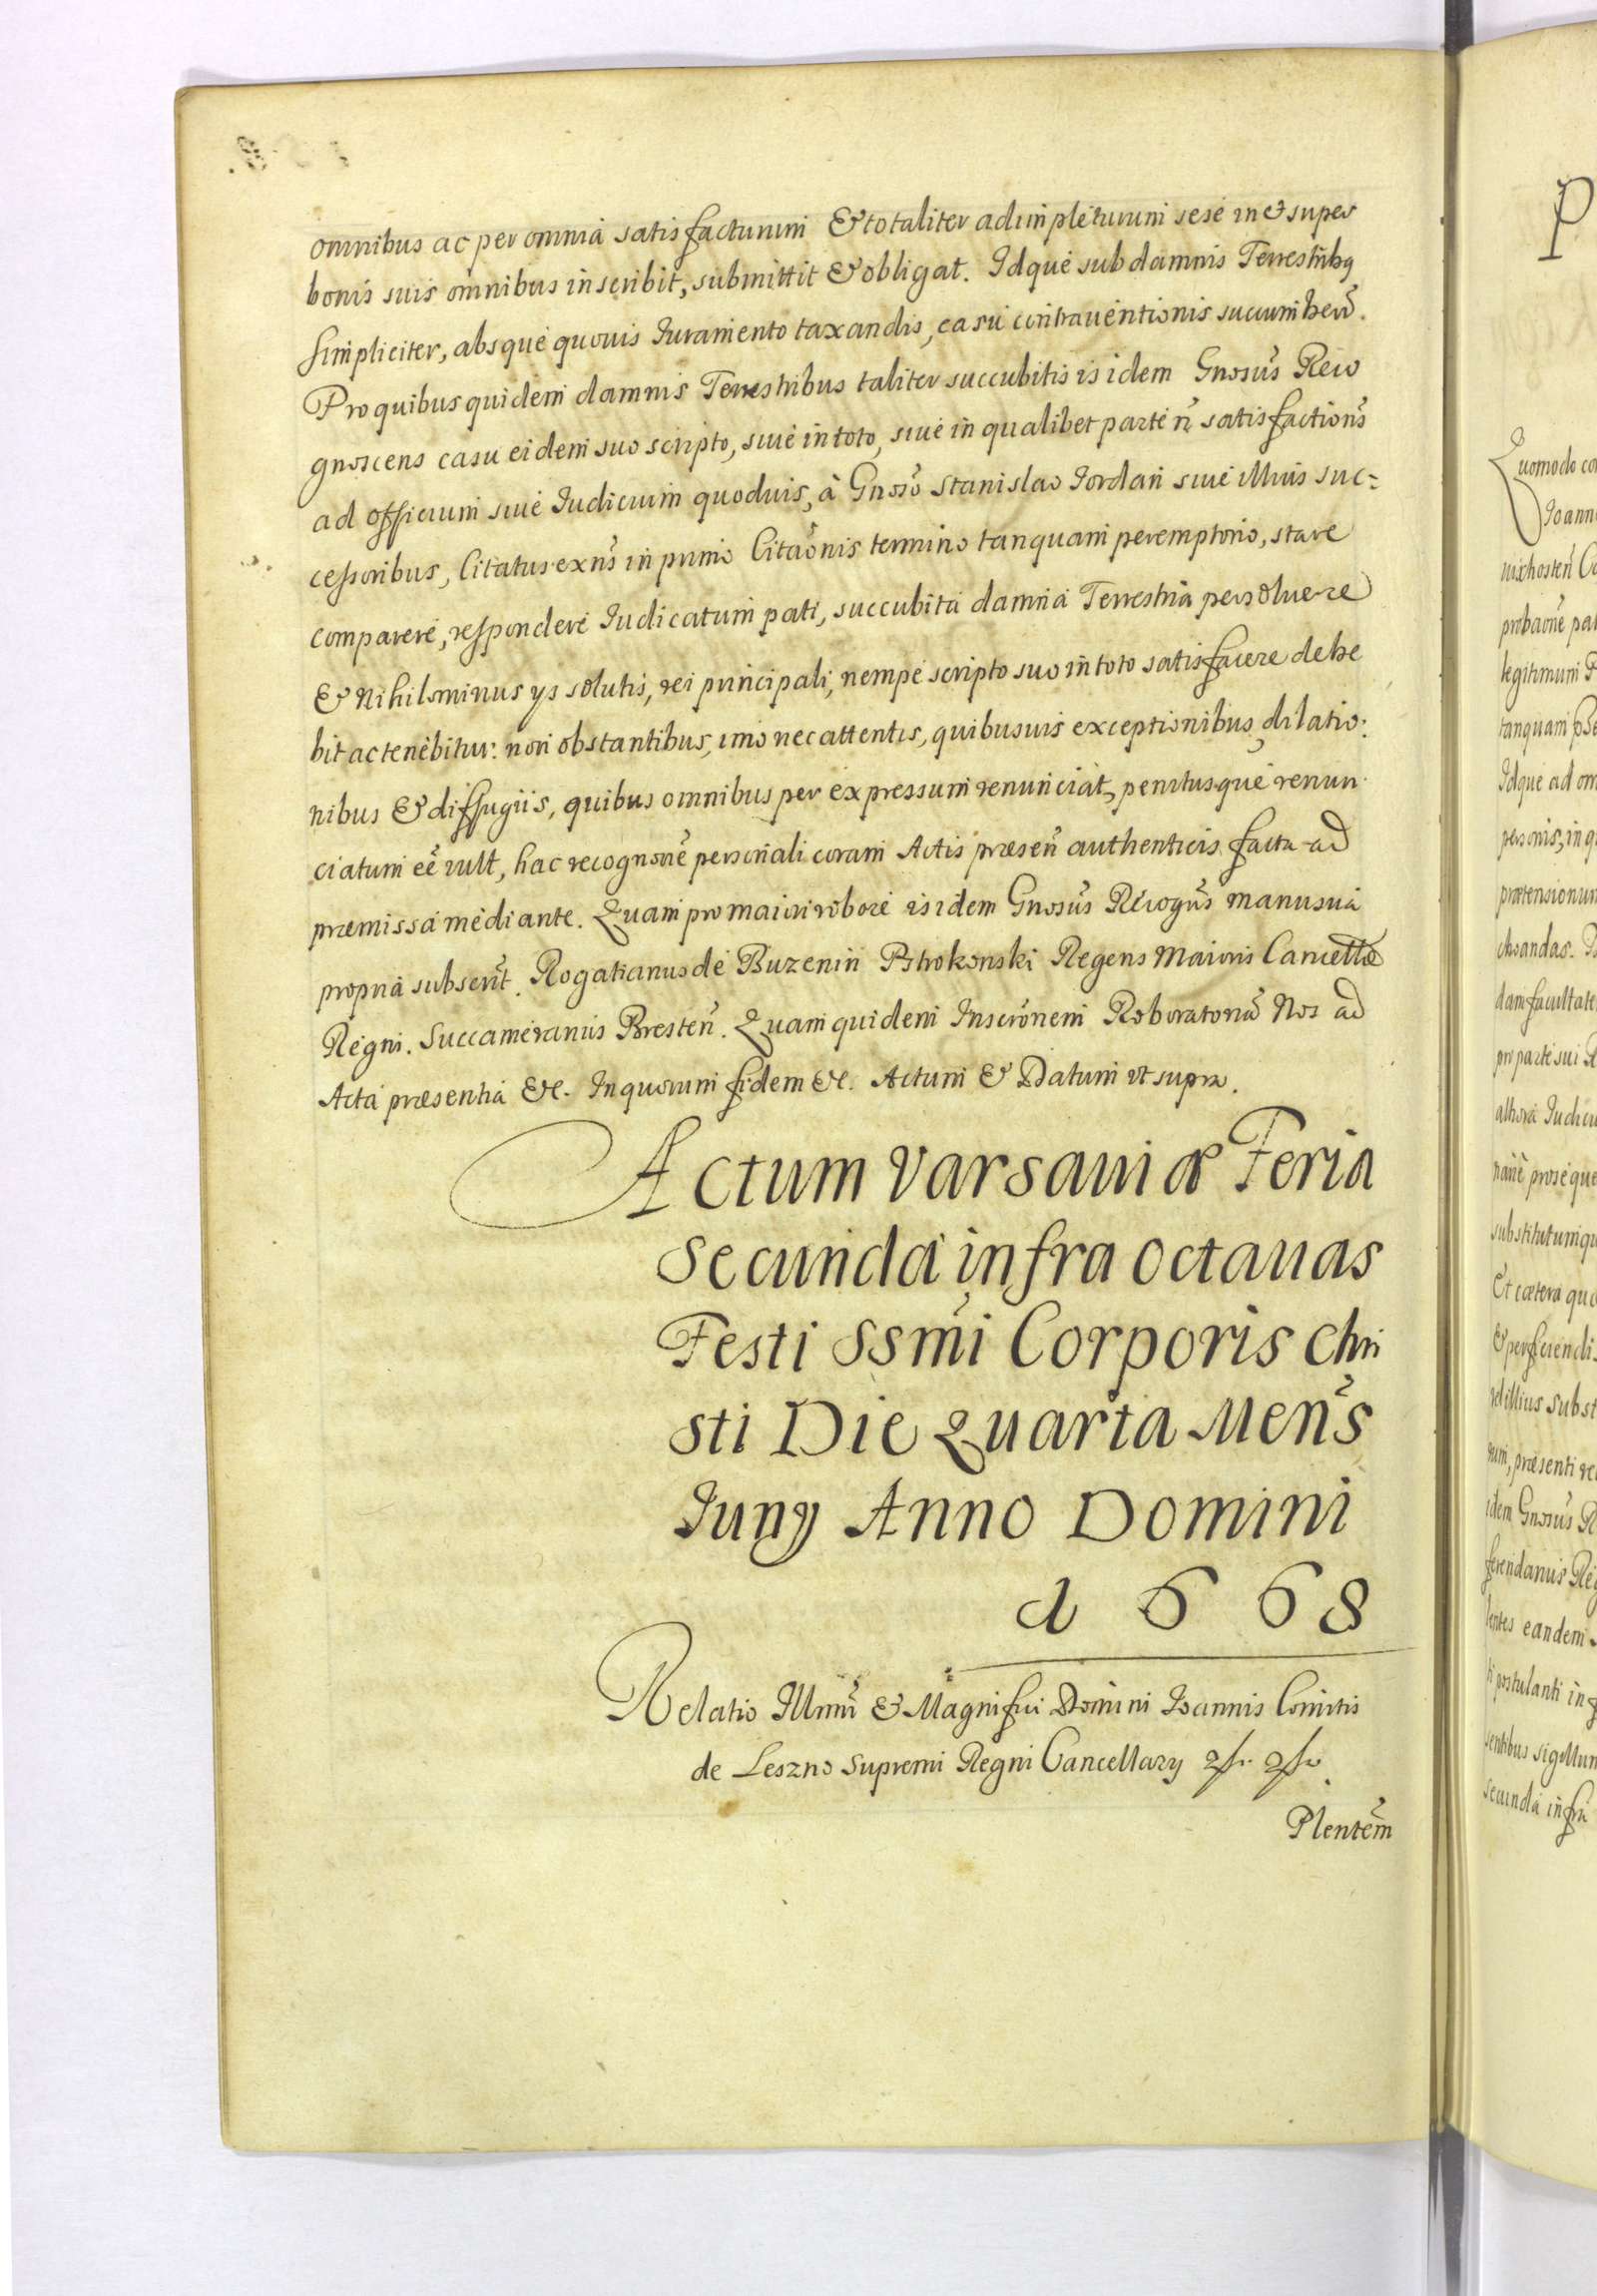 omnibus ac per omnia satisfacturum & totaliter adimpleturum sese in & super
bonis suis omnibus inscribit, submittit & obligat. Idque sub damnis Terrestribq
simpliciter, absque quouis Iuramento taxandis, casu contrauentionis succumben̄.
Pro quibus quidem damnis Terrestribus taliter succubitis is idem Gnosus̄ Reco
gnoscens casu eidem suo scripto, siue in toto, siue in qualibet parte n̄ satisfactions̄
ad officium siue Iudicium quoduis, à Gnoso Stanislao Iordan siue illius suc=
cessoribus, Citatus exns̄ in primo Citaōnis termino tanquam peremptorio, stare
comparere, respondere Iudicatum pati, succubita damna Terrestria persoluere
& Nihilominus ys solutis, rei principali, nempe scripto suo in toto satisfacere debe
bit ac tenebitur: non obstantibus, imo nec attentis, quibusuis exceptionibus, dilatio:
nibus & diffugiis, quibus omnibus per expressum renunciat, penitusque renun
ciatum eē vult, hac recognoñe personali coram Actis præsen̄ authenticis facta ad
præmissa mediante. Quam pro maiori robore is idem Gnosus̄ Recogns̄ manu sua
propria subscrit̄. Rogatianus de Buzenin Pstrokonski Regens Maioris Cancellæ
Regni. Succamerarius Bresten̄. Quam quidem Inscrōnem Roboratoriā Nos ad
Acta præsentia &c. In quorum fidem &c. Actum & Datum ut supra.
Actum Varsauiæ Feria
Secunda infra octauas
Festi SSm̄i Corporis Chri
sti Die Quarta Men̄s
Iuny Anno Domini
1668
Relatio Illmi & Magnifici Domini Ioannis Comitis
de Leszno Supremi Regni Cancellary
Plentem̄
Quomodo co
Ioann
legitimum
tanquam
Idque ad om
personis, in q
prætensionum
dam facultate
pro parte sui
nañe proseque
substitutumqu
Et cætera qu
& perficiendi
vel illius subst
rum, præsenti re
idem Gnosus̄ R
ferendarius Reg
lentes eandem
ti postulanti in
sentibus sigillum
secunda infra